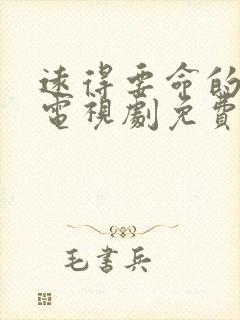 遠得要命的
電視劇免費
毛書兵